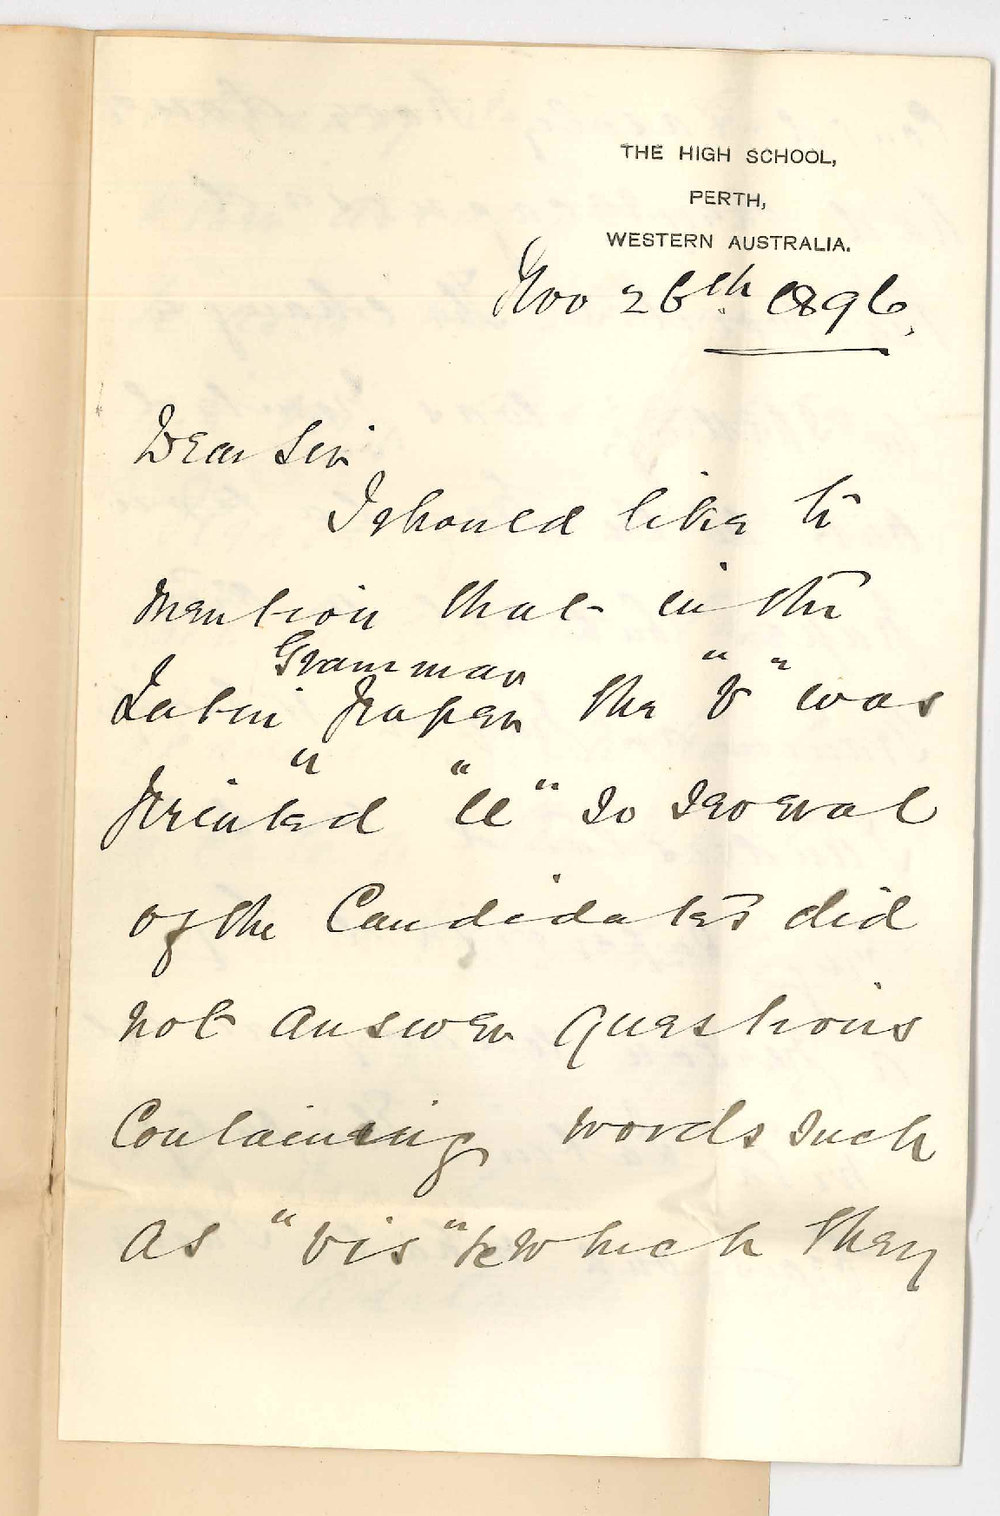 THE HIGH SCHOOL,
PERTH,
WESTERN AUSTRALIA.
Nov 26th 1896.
Dear Sir
I should like to
mention that in the
Grammar
Latin " Paper the "v" was
printed "u" so several
of the Candidates did
not answer questions
Containing words such
as "vis" &c which they